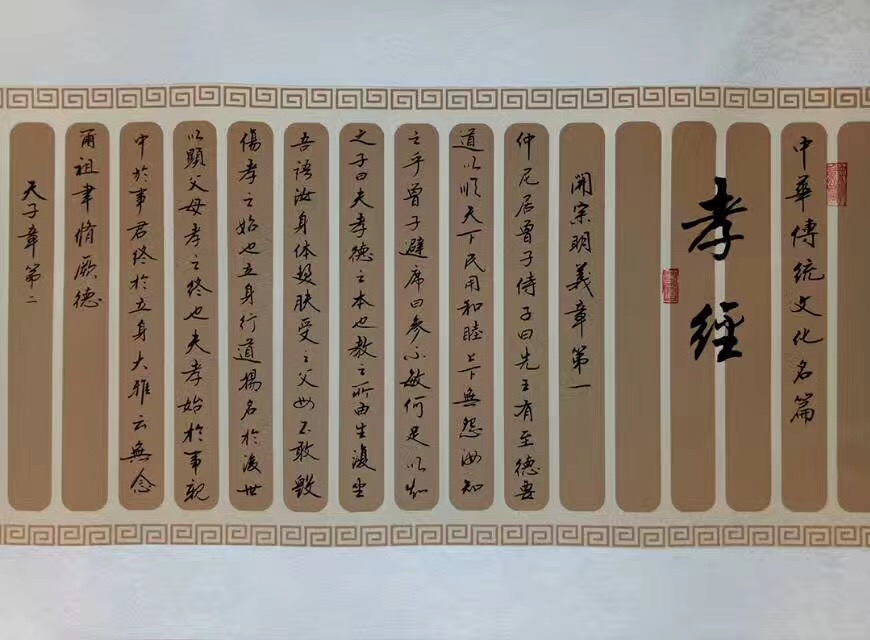 中華傳統文化名篇
孝經
開宗明義章第一
仲尼居曾子侍子曰先王有至德要
道以順天下民用和睦上下無怨汝知
之乎曾子避席曰參不敏何足以知
之子曰夫孝德之本也教之所由生復坐
吾語汝身体髮肤受之父母不敢毀
傷孝之始也立身行道揚名於後世
以顯父母孝之終也夫孝始於事親
中於事君終於立身大雅云無念
爾祖聿脩厥德
天子章第二